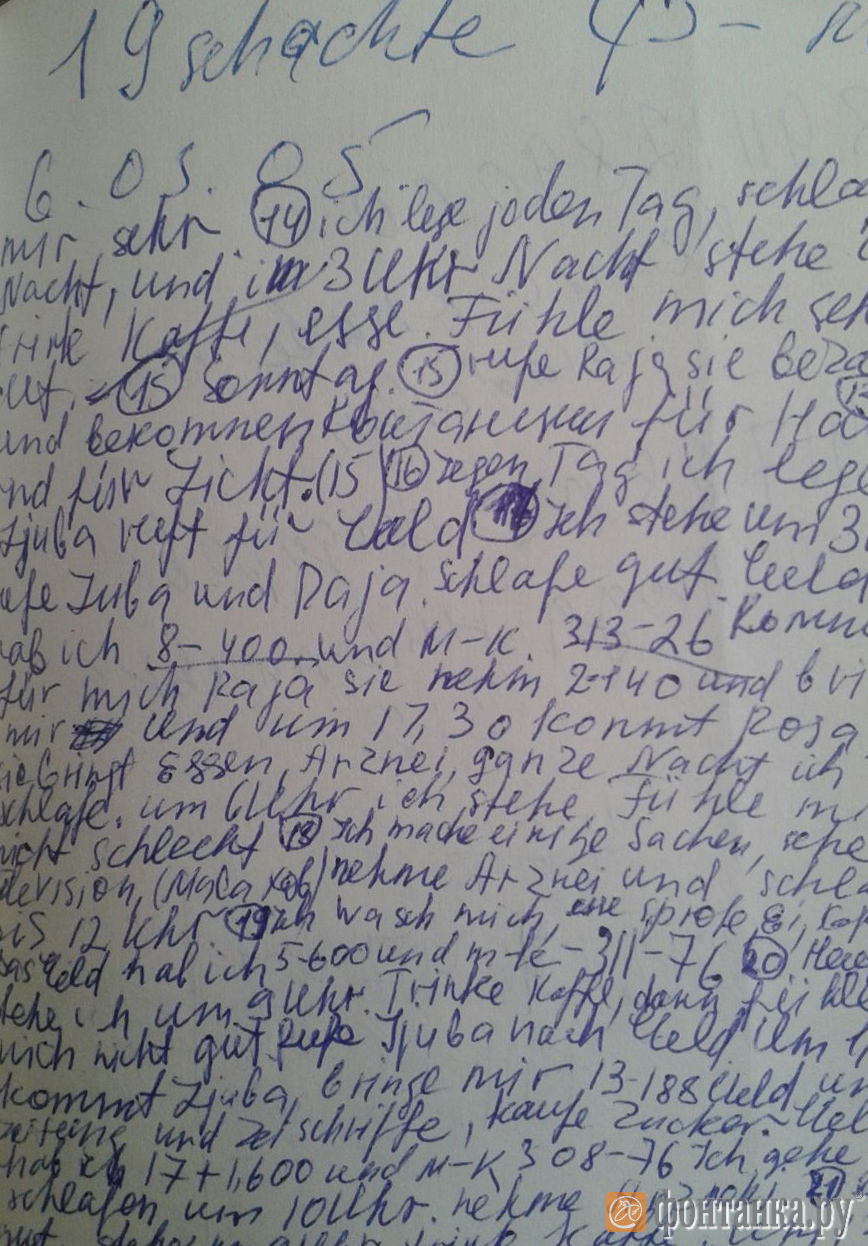 19 schachte 45-
6.03.05
mir sehr (14) ich lese jeden Tag, schla
Nacht, und im 3 Uhr Nacht stehe
trink Kaffe, esse. Fühle mich seh
ut. (15) Sonntag. (15) rufe Raja sie beza
und bekommen Квитанции für
nd für Licht. (15) (16) Tag ich lege
Ljuba ruft für Geld (17) Ich stehe um 3
ufe Luba und Raja. schlafe gut. Geld
hab ich 8-400 und M-K. 313-26 Komm
für mich Raja sie nehm 2-140 und
mir und um 17,30 kommt Rosa
sie bringt Essen, Arznei, ganze Nacht ich
schlafe. um 6 Uhr ich stehe, Fühle m
nicht schlecht (18) Ich mache einige Sachen, sehe
levision, (Малахов) nehme Arznei und schla
is 12 Uhr. (19) ich wasch mich, Ei,
das Geld hab ich 5-600 und m-k-311-76 (20)
tehe ich um 9 Uhr. Trinke Kaffe, dann
mich nicht gut, Rufe Ljuba nach Geld um 1
kommt Ljuba, bringe mir 13-188 Geld un
zeitung und schriffe, kaufe Zucker. Gel
hab ich 17+1,600 und M-K 308-76 Ich gehe
schlafen um 10 Uhr. nehme (21)
фонтанка.ру